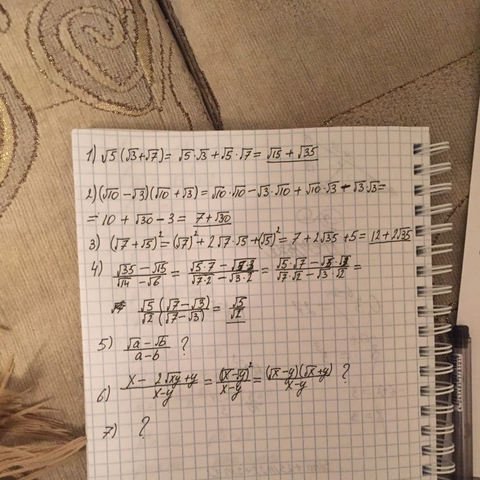 1) √5 (√3+√7) = √5·√3 + √5·√7 = √15 + √35
2) (√10 - √3)(√10 + √3) = √10·√10 - √3·√10 + √10·√3 - √3·√3 =
= 10 + √30 - 3 = 7+√30
3) (√7+√5)² = (√7)² + 2√7·√5 + (√5)² = 7 + 2√35 + 5 = 12+2√35
4) (√35 - √15)/(√14 - √6) = (√5·7 - √5·3)/(√7·2 - √3·2) = (√5·√7 - √5·√3)/(√7·√2 - √3·√2) =
√5(√7-√3)/√2(√7-√3) = √5/√2
5) (√a - √b)/(a-b) ?
6) (x - 2√xy + y)/(x-y) = (√x-√y)²/(x-y) = (√x-y)(√x+y)/(x-y) ?
7) ?